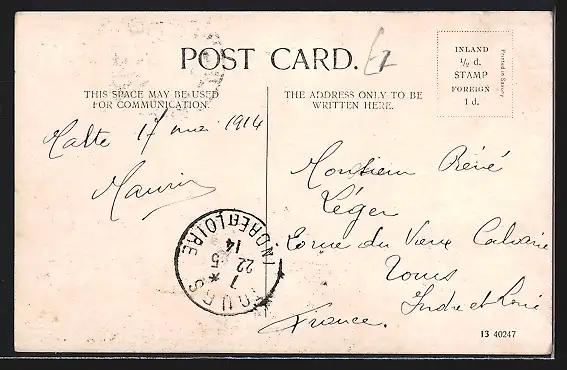 POST CARD.
THIS SPACE MAY BE USED
FOR COMMUNICATION.
THE ADDRESS ONLY TO BE
WRITTEN HERE.
INLAND
½ d.
STAMP
FOREIGN
1 d.
Printed in Saxony
Malte 17 mai 1914
Maurin
Monsieur Réné
Léger
rue du Vieux Calvaire
Tours
Indre et Loire
France.
TOURS
INDRE ET LOIRE
7
22 5
14
13 40247